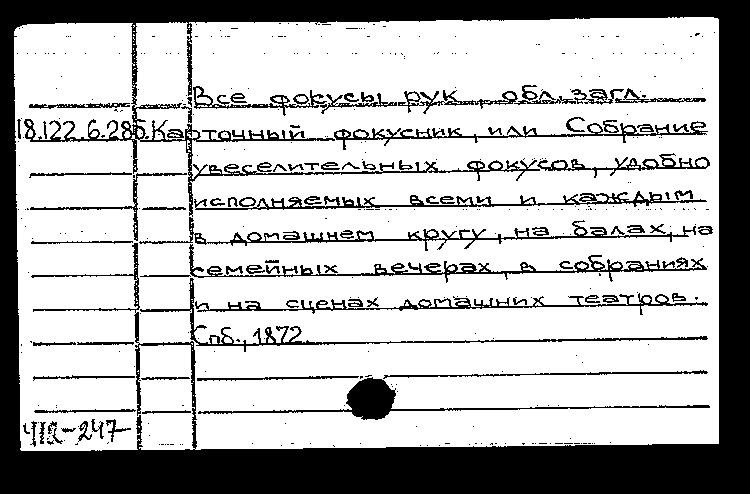 Все фокусы рук, обл. загл.
18.122.6.286. Карточный фокусник, или Собрание
увеселительных фокусов, удобно
исполняемых всеми и каждым
в домашнем кругу, на балах, на
семейных вечерах, в собраниях
и на сценах домашних театров.
Спб., 1872.
412-247